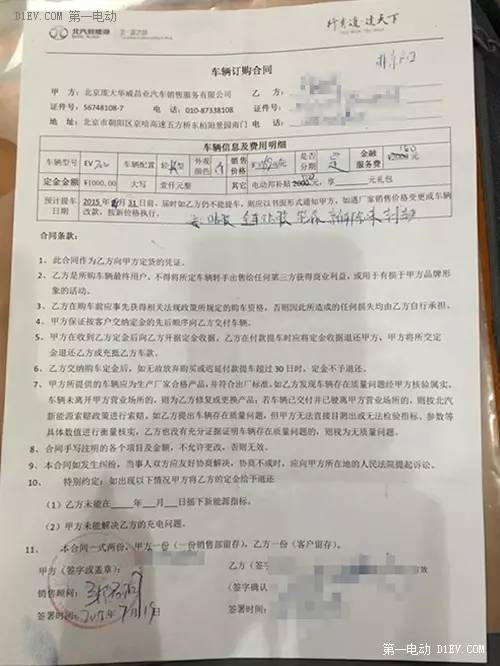 D1EV.COM 第一电动
北汽新能源
车辆订购合同
甲 方：北京庞大华威昌业汽车销售服务有限公司 乙 方：
证件号：56748108-7 电 话：010-87338108 证件号：
地 址：北京市朝阳区京哈高速五方桥东柏阳景园南门 电 话：
车辆信息及费用明细
车辆型号 EV 车辆配置 型 外观颜色 销售价格 是否分期 是 金融服务费
定金金额 ¥1000.00 大写 壹仟元整 其它 电动邦补贴 元，享 元礼包
预计提车日期 2015 年 月 31 日前，届时如仍不能提车，则应以书面形式通知甲方，如遇厂家销售价格变更或车辆改款，按新价格执行。
合同条款：
1、 此合同作为乙方向甲方定货的凭证。
2、 乙方是所购车辆最终用户，不得将所定车辆转手出售给任何第三方获得商业利益，或用于有损于甲方品牌形
象的活动。
3、 乙方在购车前应事先获得相关法规政策所规定的购车资格，否则因此所造成的任何损失均由乙方自行承担。
4、 甲方保证按客户交纳定金的先后顺序向乙方交付车辆。
5、 甲方在收到乙方定金后向乙方开据定金收据，乙方在付款提车时应将定金收据退还甲方，甲方将所交定
金退还乙方或充抵乙方车款。
6、 乙方交纳购车定金后，如无故弃购买或迟延付款提车超过 30 日时，定金不予退还。
7、 甲方所提供的车辆应为生产厂家合格产品，并符合出厂标准。如乙方发现车辆存在质量问题经甲方核验属实，
车辆未离开甲方营业场所的，则为乙方修复或更换产品；若车辆已交付并已驶离甲方营业场所的，则按北汽
新能源索赔政策进行索赔，如乙方提出车辆存在质量问题，但甲方无法直接目测出或无法检验指标、参数等
具体数值进行衡量核实，乙方也没有充分证据证明车辆存在质量问题的，则视为无质量问题。
8、 合同手写注明的各个项目及金额，不允许更改，否则无效。
9、 本合同如发生纠纷，当事人双方应友好协商解决，协商不成时，应向甲方所在地的人民法院提起诉讼。
10、 特别约定：如出现以下情况甲方将乙方的定金给予退还
（1）乙方未能在____年___月___日摇下新能源指标。
（2）甲方未能解决乙方的充电问题。
11、 本合同一式两份，甲方一份（一份销售部留存），乙方一份（客户留存）。
甲方（签字或盖章）： 乙方（签字 效
销售顾问： （签字确认
签署时间：2015年7月19日 签署时间：
第一电动 D1EV.COM